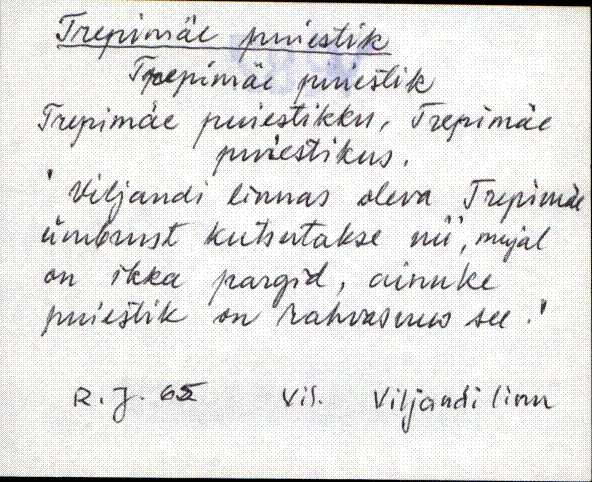 Trepimäe puiestik
Trepimäe puiestik
Trepimäe puiestikku, Trepimäe
puiestikus.
"Viljandi linnas oleva Trepimäe
ümbrust kutsutakse nii, mujal
on ikka pargid, ainuke
puiestik on rahvasuus see."
R. J. 65 Vil. Viljandi linn